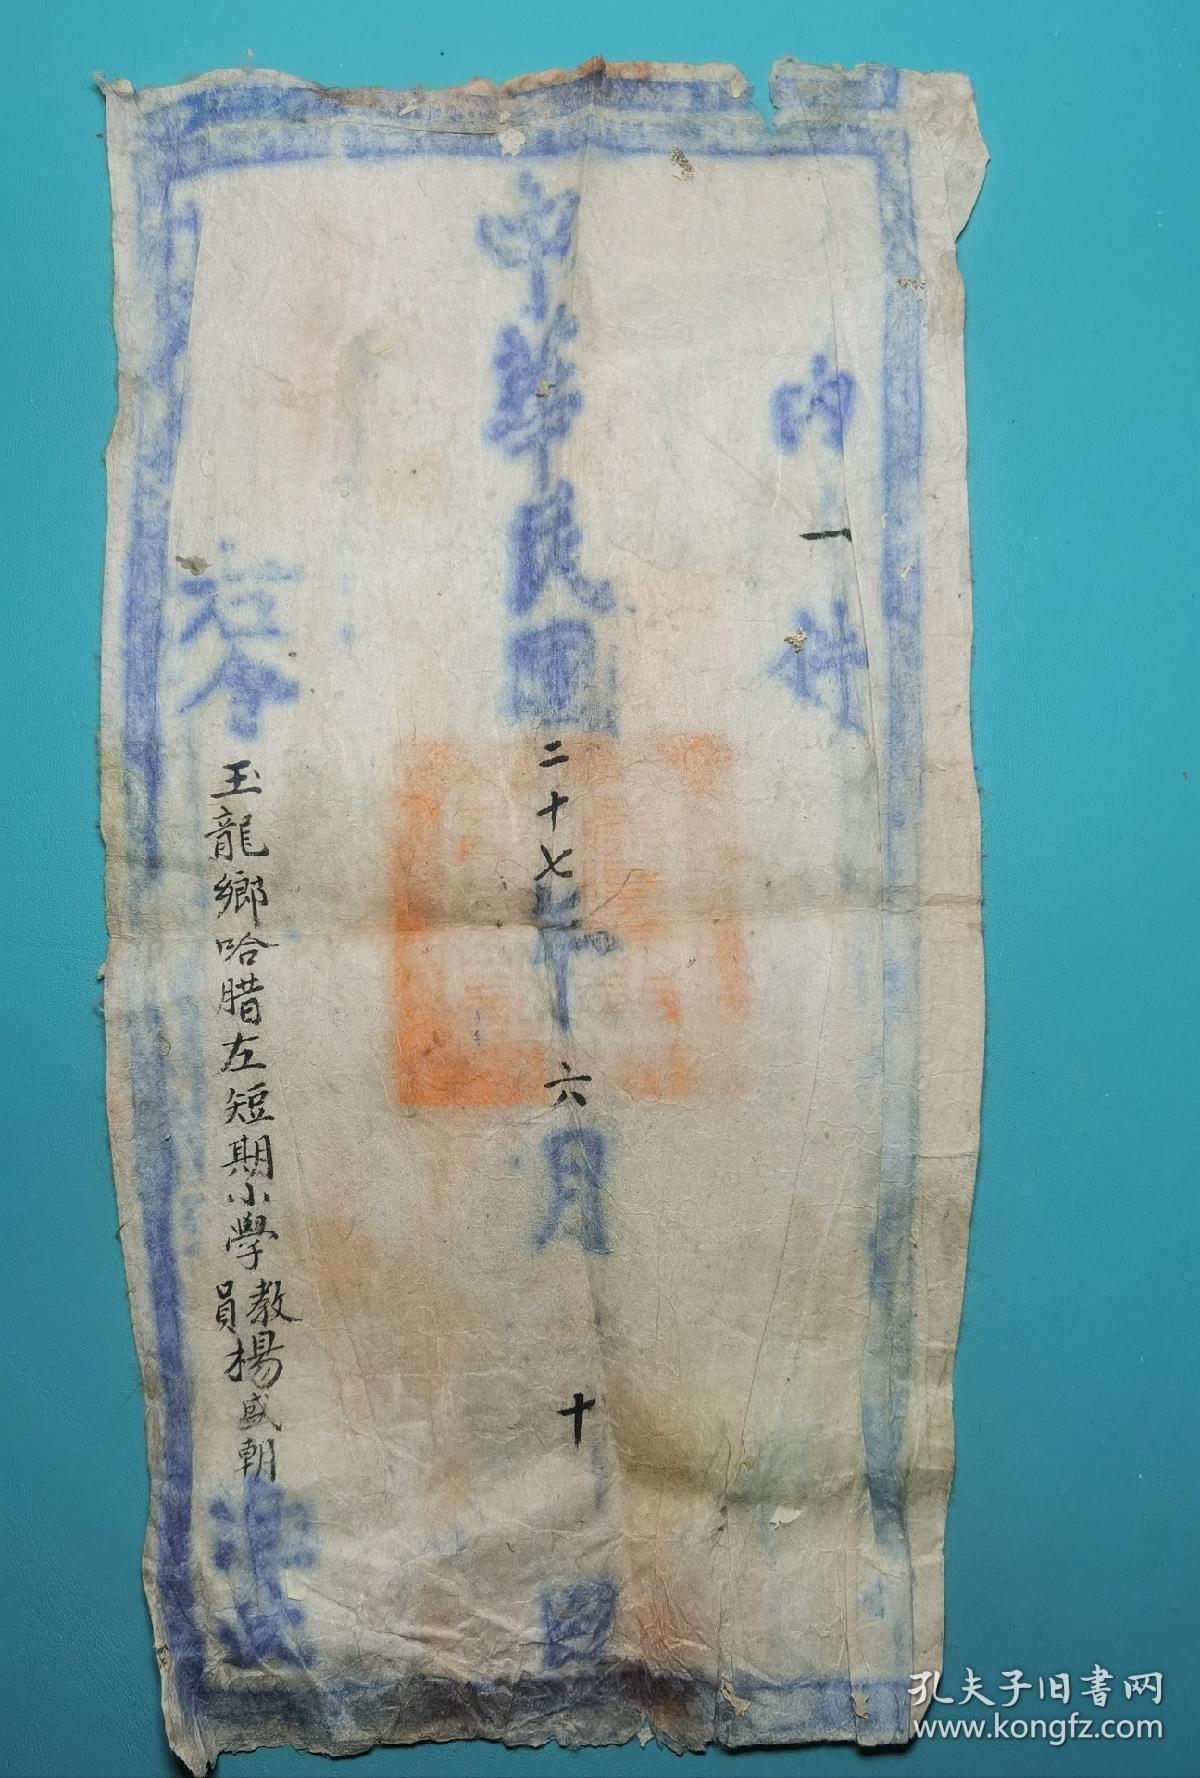 內一件
中華民國二十七年六月十日
右令
玉龍鄉哈腊左短期小學教員楊盛朝
准此
孔夫子旧書网
www.kongfz.com